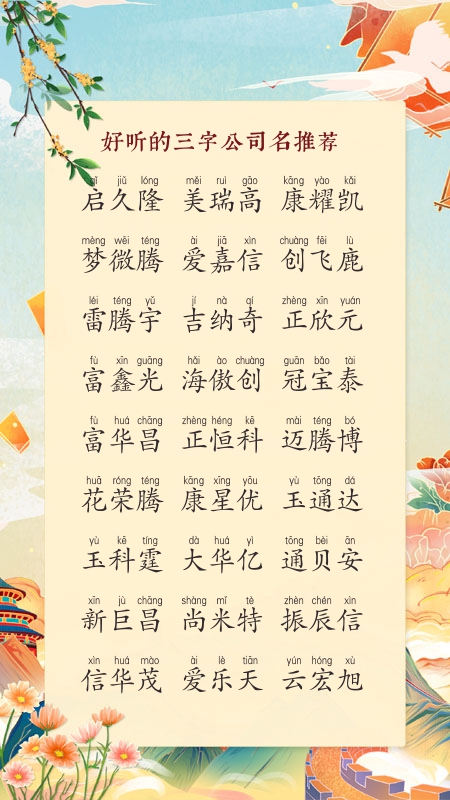 好听的三字公司名推荐
qǐ jiǔ lóng měi ruì gāo kāng yào kǎi
启久隆 美瑞高 康耀凯
mèng wēi téng ài jiā xìn chuàng fēi lù
梦微腾 爱嘉信 创飞鹿
léi téng yǔ jí nà qí zhèng xīn yuán
雷腾宇 吉纳奇 正欣元
fù xīn guāng hǎi ào chuàng guān bǎo tài
富鑫光 海傲创 冠宝泰
fù huá chāng zhèng héng kē mài téng bó
富华昌 正恒科 迈腾博
huā róng téng kāng xīng yōu yù tōng dá
花荣腾 康星优 玉通达
yù kē tíng dà huá yì tōng bèi ān
玉科霆 大华亿 通贝安
xīn jù chāng shàng mǐ tè zhèn chén xìn
新巨昌 尚米特 振辰信
xìn huá mào ài lè tiān yún hóng xù
信华茂 爱乐天 云宏旭